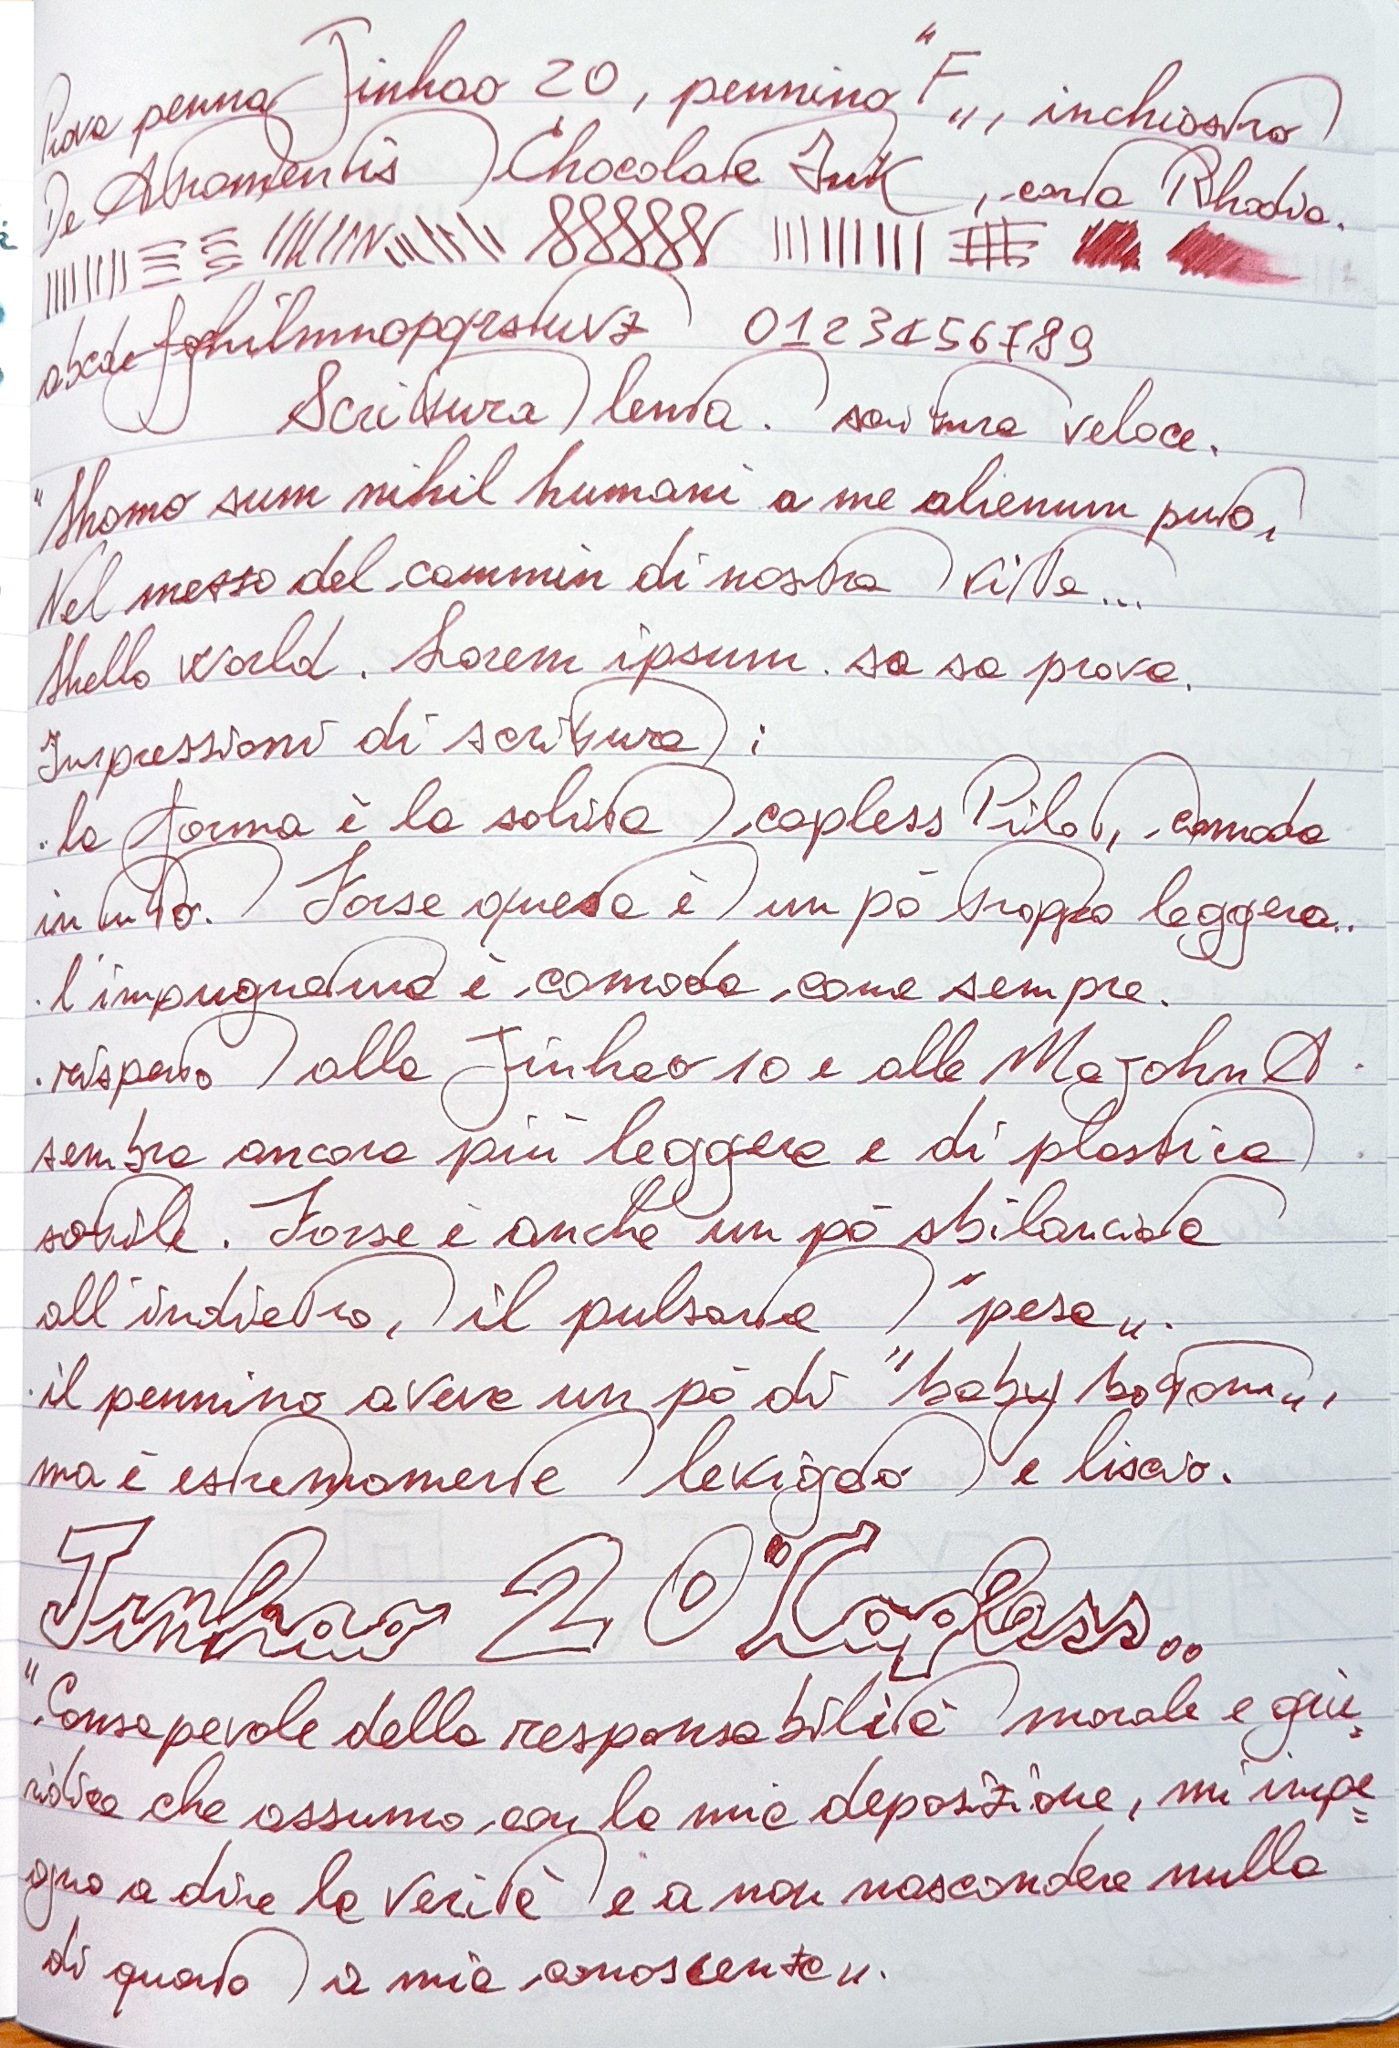 Prova penna Jinhao 20, pennino "F", inchiostro
De Atramentis Chocolate Ink, carta Rhodia.
abcdefghilmnopqrstuvz 0123456789
Scrittura lenta. scrittura veloce.
"Homo sum nihil humani a me alienum puto,
Nel mezzo del cammin di nostra vita...
Hello world. Lorem ipsum. sa sa prova.
Impressioni di scrittura:
. la forma è la solita capless Pilot, comoda
in tutto. Forse questa è un pò troppo leggera..
. l'impugnatura è comoda come sempre.
. rispetto alla Jinhao 10 e alle Majohn A
sembra ancora più leggera e di plastica
sottile. Forse è anche un pò sbilanciata
all'indietro, il pulsante "pesa".
. il pennino aveva un pò di "baby bottom",
ma è estremamente levigato e liscio.
Jinhao 20 Capless..
"Consapevole della responsabilità morale e giu=
ridica che assumo con la mia deposizione, mi impe=
gno a dire la verità e a non nascondere nulla
di quanto a mia conoscenza".